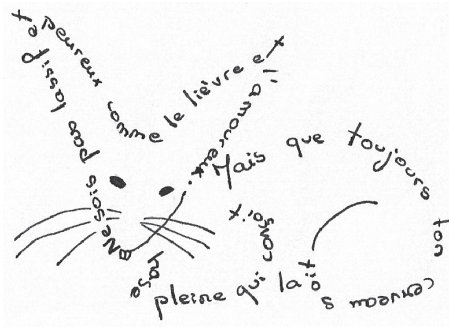 Ne sois pas lassif et
peureux comme le lièvre et
l'amoureux.
Mais que toujours ton
cerveau soit la
hase
pleine qui conçoit